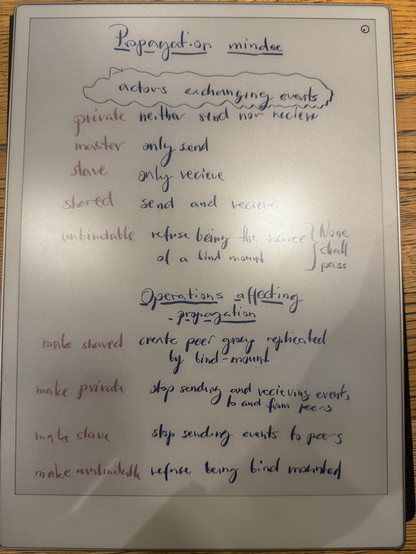 Propagation mindee
actors exchanging events
private neither send nor recieve
master only send
slave only recieve
shared send and recieve
unbindable refuse being the source } None
of a bind mount shall
pass
Operations affecting
- propagation
make shared create peer group replicated
by bind-mount
make private stop sending and recieving events
to and from peers
make slave stop sending events to peers
make unbindable refuse being bind mounted